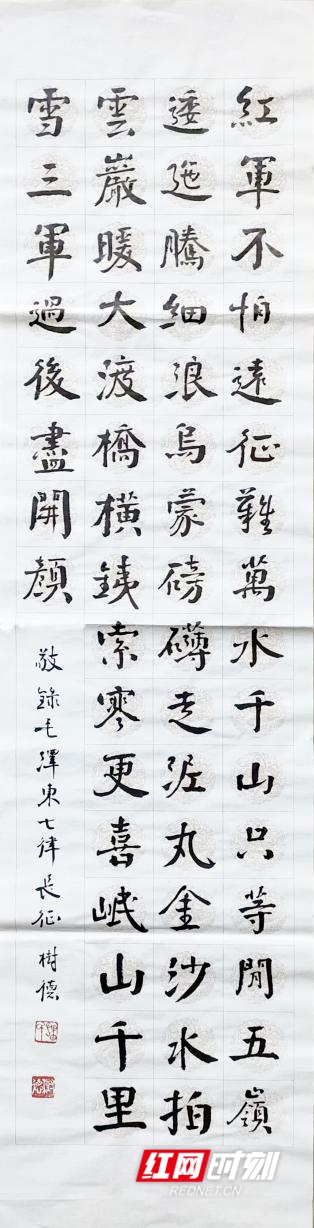 紅軍不怕遠征難萬水千山只等閒五嶺
逶迤騰細浪烏蒙磅礴走泥丸金沙水拍
雲巖暖大渡橋橫銕索寒更喜岷山千里
雪三軍過後盡開顏
敬錄毛澤東七律長征 樹德
红网时刻
REDNET.CN